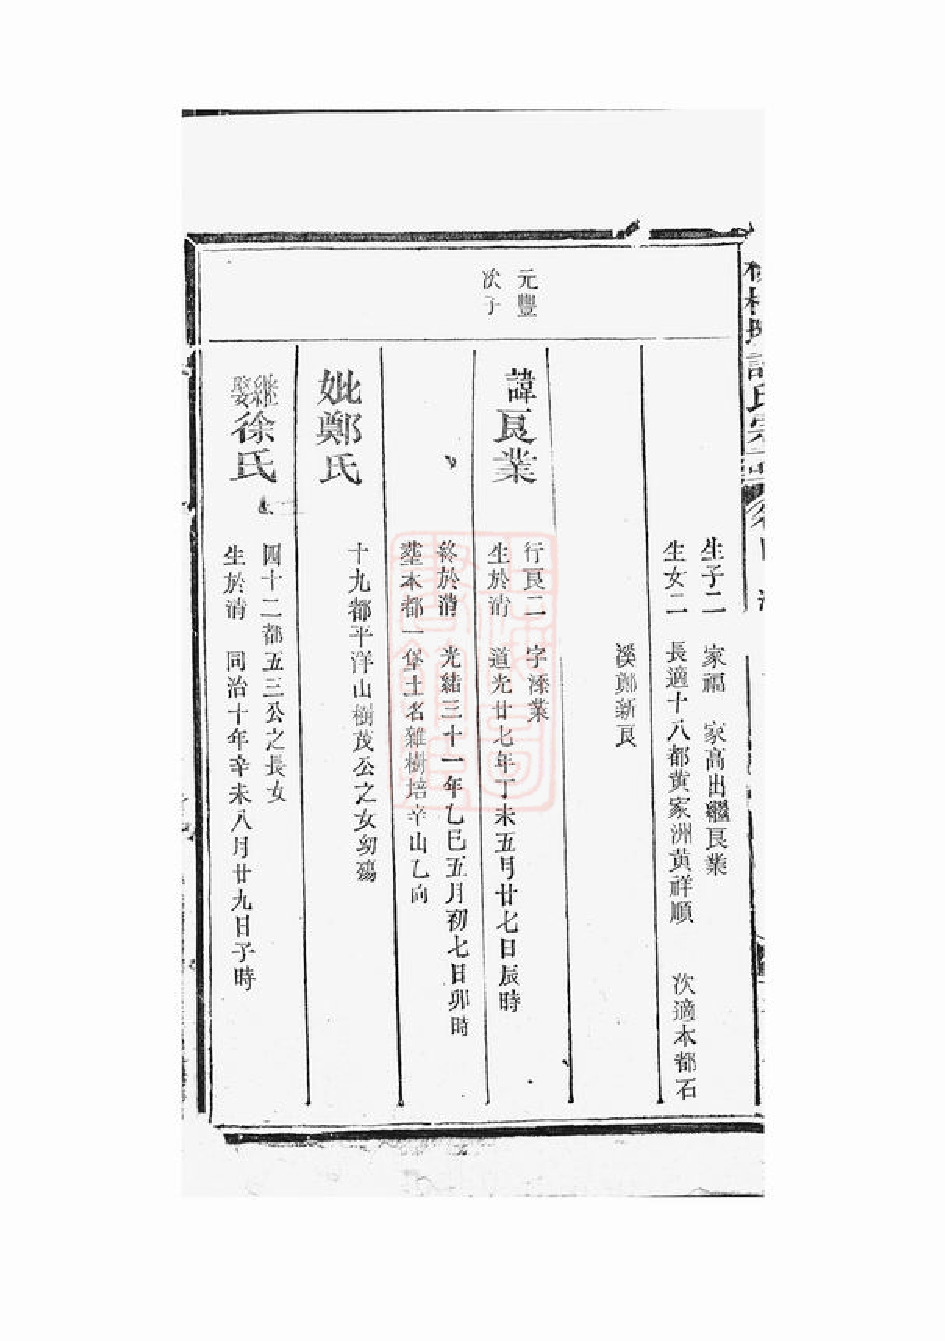 生子二　家福　家高出繼良業
生女二　長適十八都黃家洲黃祥順　次適本都石
溪鄭新良
元豐
次子
諱良業
行良二　字漆業
生於清　道光廿七年丁未五月廿七日辰時
終於清　光緒三十一年乙巳五月初七日卯時
塟本都一保土名雜樹培辛山乙向
妣鄭氏
十九都平洋山樹茂公之女幼殤
繼娶徐氏
四十二都五三公之長女
生於清　同治十年辛未八月廿九日子時